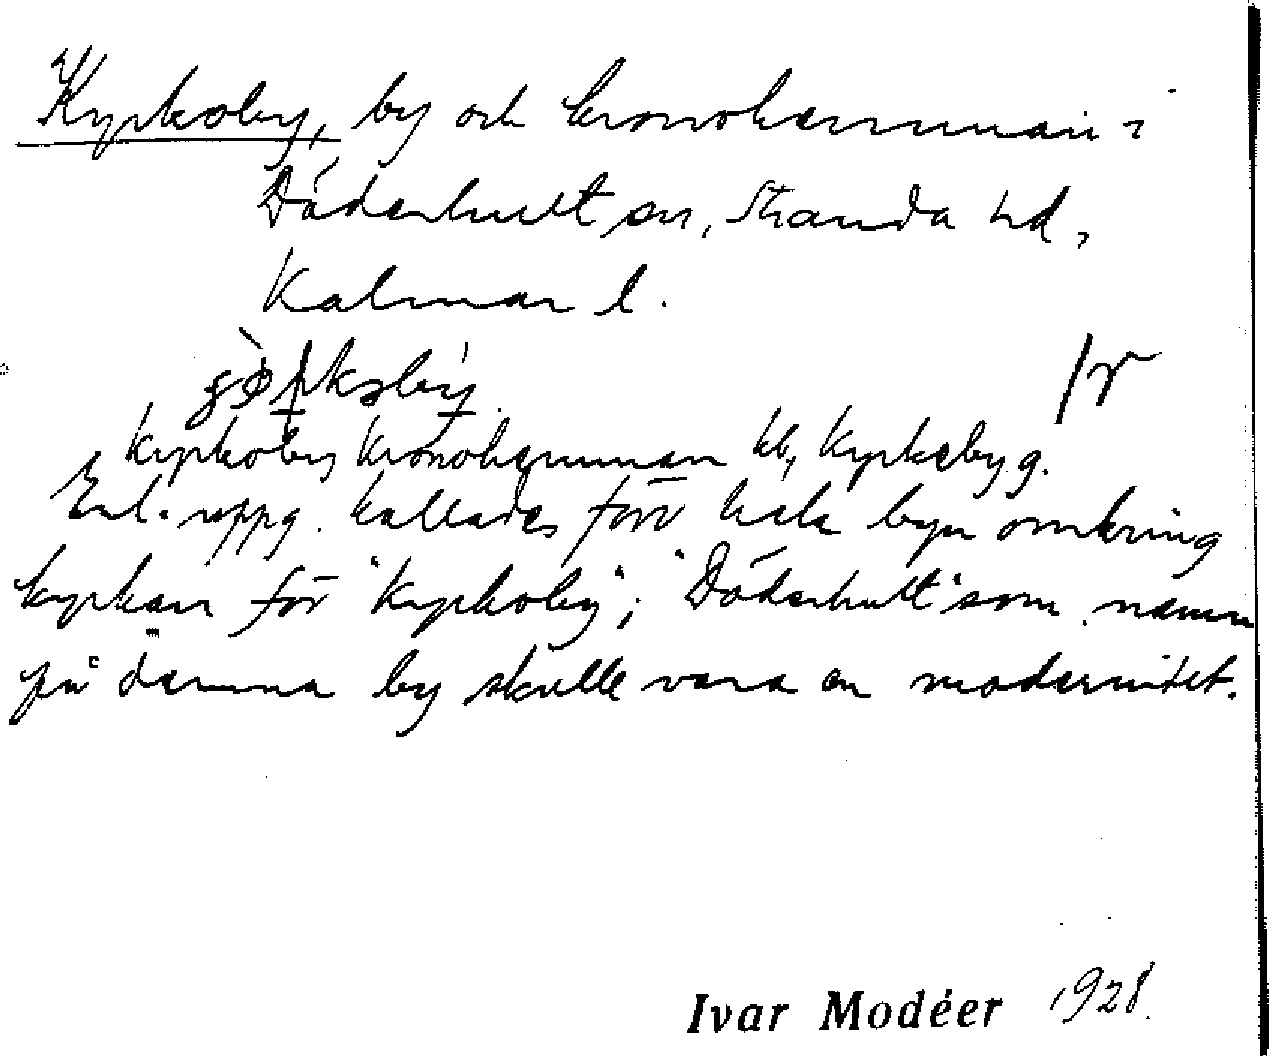 Kyrkoby, by och kronohemman i
Döderhult sn, Stranda hd,
Kalmar l.
Kyrkoby kronohemman kb, Kyrkeby g.
Enl. uppg. kallades förr hela byn omkring
kyrkan för "Kyrkoby"; "Döderhult" som namn
på denna by skulle vara en modernitet.
Ivar Modéer 1928.